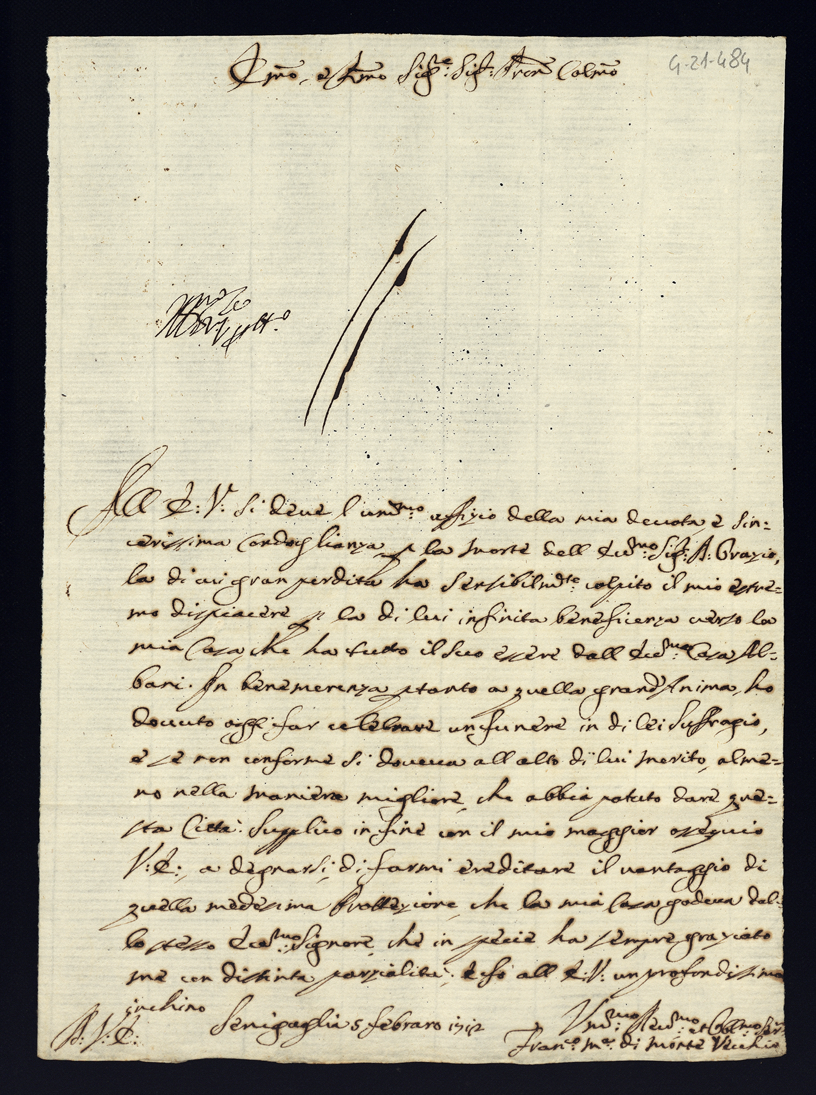 Emo, e Rmo Sigre: Sig: Pron Colmo
4-21-484
All E: V: si deve l'umilmo uffizio della mia devota, e sin=
cerissima Condoglianza p la morte dell Eccmo: Sig: D: Orazio,
la di cui gran perdita ha sensibilmte colpito il mio estre=
mo dispiacere p la di lui infinita beneficenza verso la
mia Casa che ha tutto il suo essere dall Eccma: Casa Al=
bani. In benemerenza ptanto a quella grand'Anima, ho
dovuto oggi far celebrare un funere in di lei suffragio,
e se non conforme si doveva all'alto di lui merito, alme=
no nella maniera migliore, che abbia potuto dare que=
sta Città. Supplico in fine con il mio maggior ossequio
V: E:, a degnarsi di farmi ereditare il vantaggio di
quella medesima Protezione, che la mia Casa godeva dal=
lo stesso Eccmo: Signore, che in specie ha sempre graziato
me con distinta parzialità; e fo all E: V: un profondissimo
inchino
Senigaglia 5 febraro 1712
Franco: Ma: di Monte Vecchio